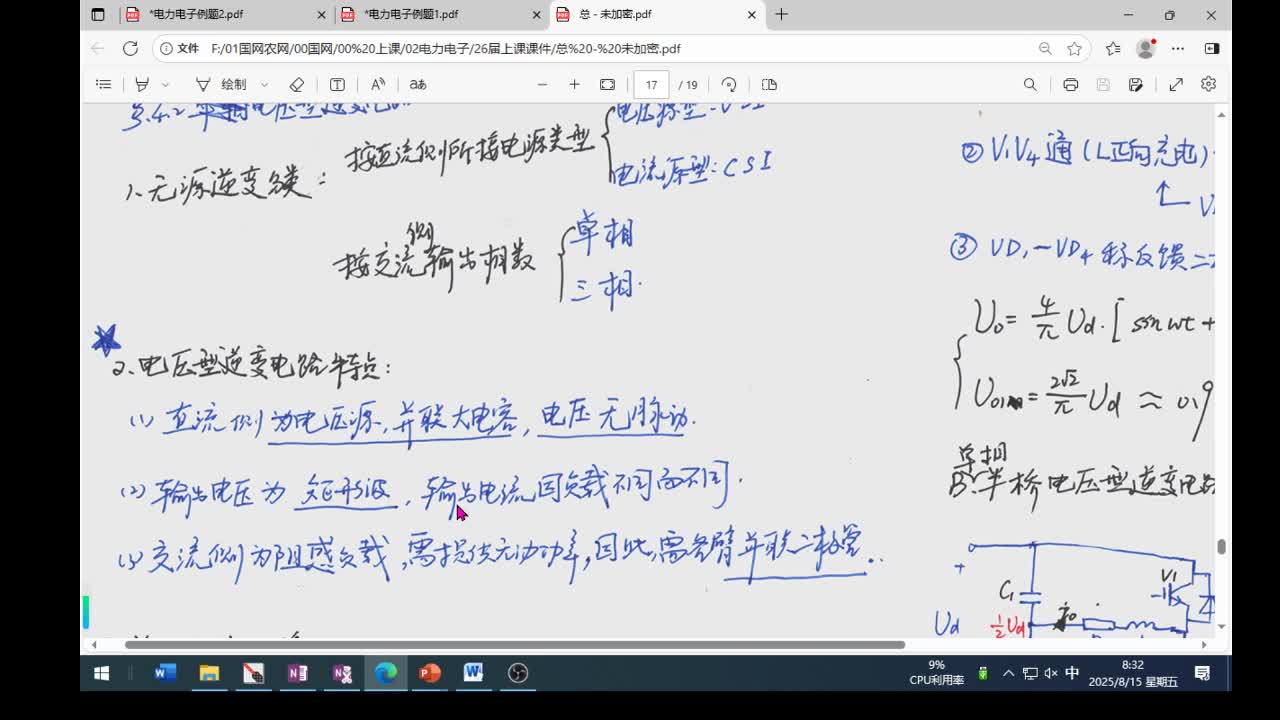 *电力电子例题2.pdf
*电力电子例题1.pdf
总 - 未加密.pdf
文件 F:/01国网农网/00国网/00%20上课/02电力电子/26届上课课件/总%20-%20未加密.pdf
绘制
aあ
17 / 19
1、无源逆变分类:
按直流侧所接电源类型
电压源型:VSI
电流源型:CSI
按交流侧输出相数
单相
三相.
2、电压型逆变电路特点:
(1) 直流侧为电压源,并联大电容,电压无脉动.
(2) 输出电压为 矩形波,输出电流因负载不同而不同.
(3) 交流侧为阻感负载,需提供无功功率,因此,需各臂并联二极管..
② V1V4通(L正向充电)
③ VD1~VD4称反馈二
U0= 4/π Ud.[ sin wt +
U01 = 2√2/π Ud ≈ 0.9
单相
B、半桥电压型逆变电路
+
C1
V1
i0
Ud
½Ud
9%
CPU利用率
中
8:32
2025/8/15 星期五